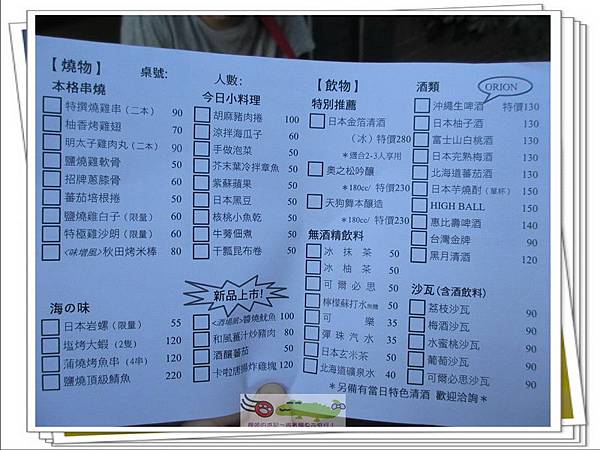 【燒物】 桌號: 人數:
本格串燒
特撰燒雞串(二本) 90
柚香烤雞翅 70
明太子雞肉丸(二本) 90
鹽燒雞軟骨 50
招牌蔥膝骨 60
蕃茄培根捲 50
鹽燒雞白子(限量) 60
特極雞沙朗(限量) 60
<味增風>秋田烤米棒 80
海の味
日本岩螺(限量) 55
塩烤大蝦(2隻) 120
蒲燒烤魚串(4串) 120
鹽燒頂級鯖魚 220
今日小料理
胡麻豬肉捲 100
涼拌海瓜子 60
手做泡菜 50
芥末葉冷拌章魚 50
紫蘇蘋果 50
日本黑豆 50
核桃小魚乾 50
牛蒡佃煮 50
干瓢昆布卷 50
新品上市!
<酒場風>醬燒魷魚 100
和風薑汁炒豬肉 80
酒釀蕃茄 50
卡啦唐揚炸雞塊 120
【飲物】
特別推薦
日本金箔清酒
(冰)特價280
*適合2-3人享用
奧之松吟釀
*180cc/ 特價230
天狗舞本釀造
*180cc/ 特價230
無酒精飲料
冰 抹 茶 50
冰 柚 茶 50
可 爾 必 思 50
檸檬蘇打水無糖 50
可 樂 35
彈 珠 汽 水 35
日本玄米茶 50
北海道礦泉水 40
酒類 ORION
沖繩生啤酒 特價130
日本柚子酒 130
富士山白桃酒 130
日本完熟梅酒 130
北海道蕃茄酒 130
日本芋燒酎(單杯) 150
HIGH BALL 150
惠比壽啤酒 140
台灣金牌 90
黑月清酒 120
沙瓦(含酒飲料)
荔枝沙瓦 90
梅酒沙瓦 90
水蜜桃沙瓦 90
葡萄沙瓦 90
可爾必思沙瓦 90
*另備有當日特色清酒 歡迎洽詢*